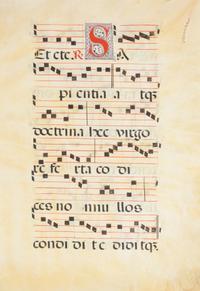 Et cete. R. S A
pi entia a tqȝ
doctrina hec virgo
re fe rta co di
ces no nnu llos
condi di t e didi tqȝ